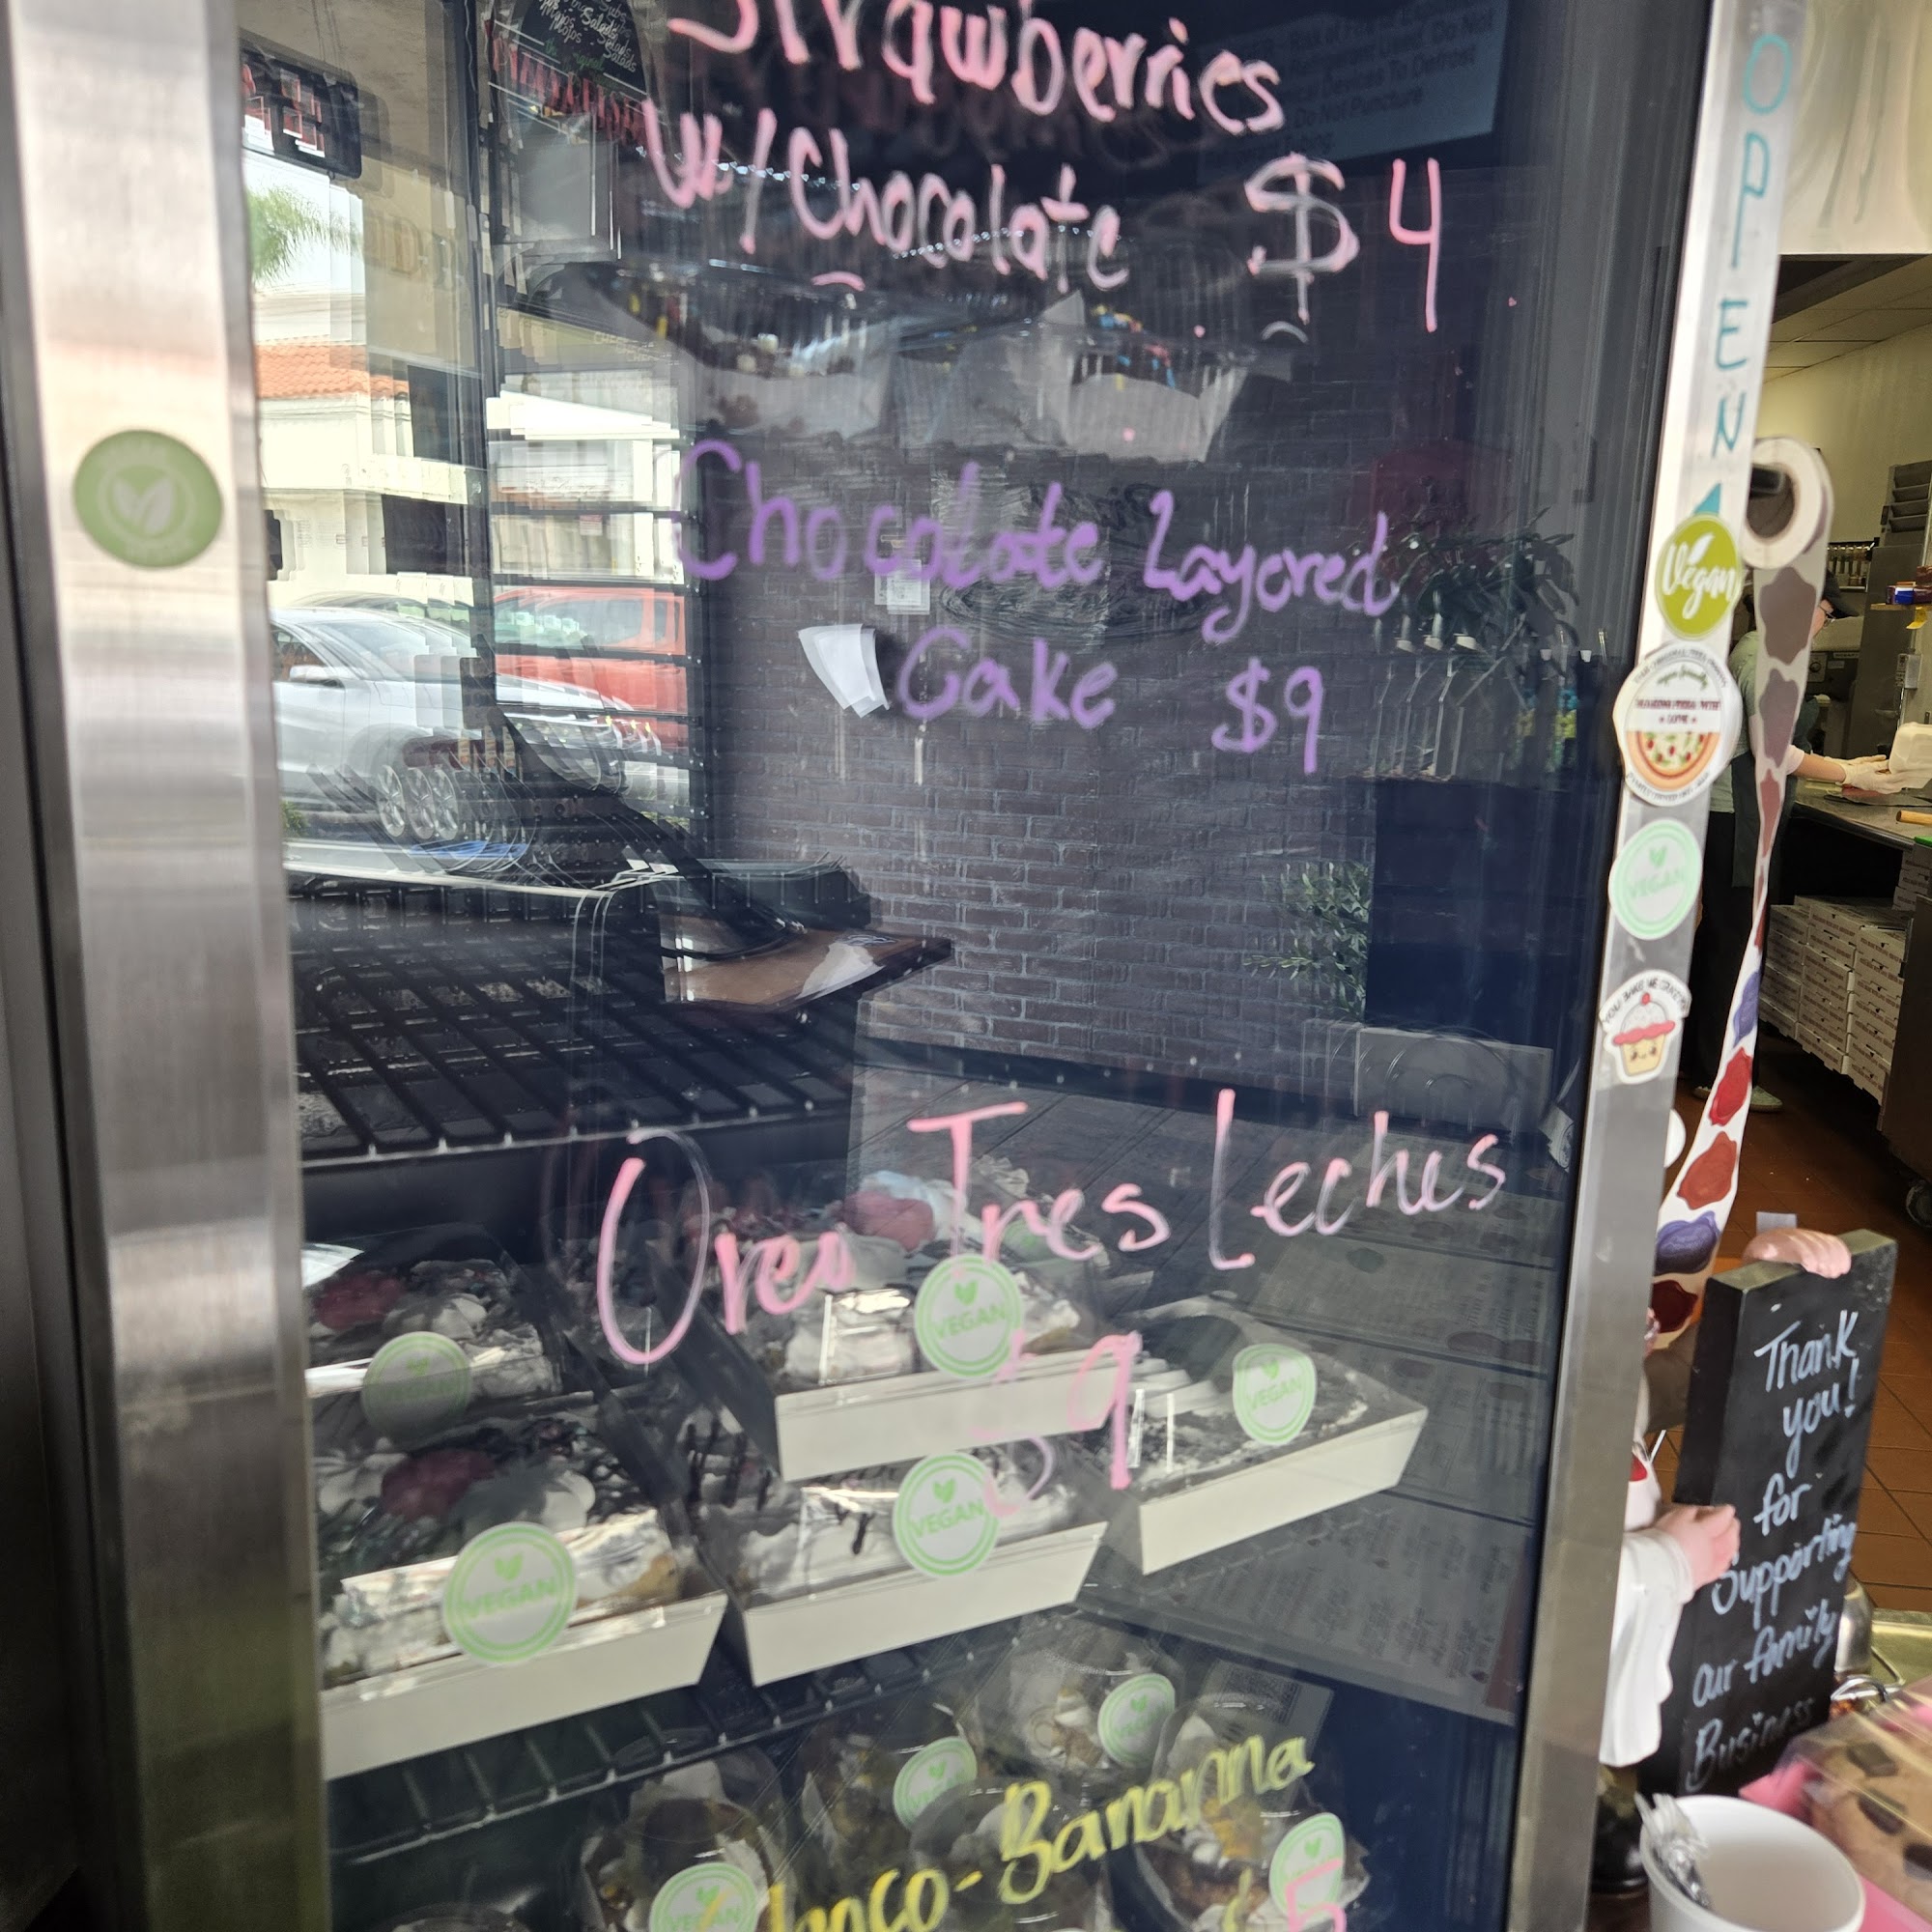 Strawberries
W/Chocolate $4
Chocolate Layered
Cake $9
Oreo Tres Leches
$9
Choco-Bananna
$5
OPEN
Vegan
MAKING PIZZA WITH
LOVE
VEGAN
VEGAN
VEGAN
VEGAN
VEGAN
VEGAN
VEGAN
Thank
you!
for
Supporting
our family
Business